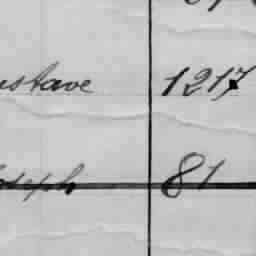 ustave 1217
oseph 81